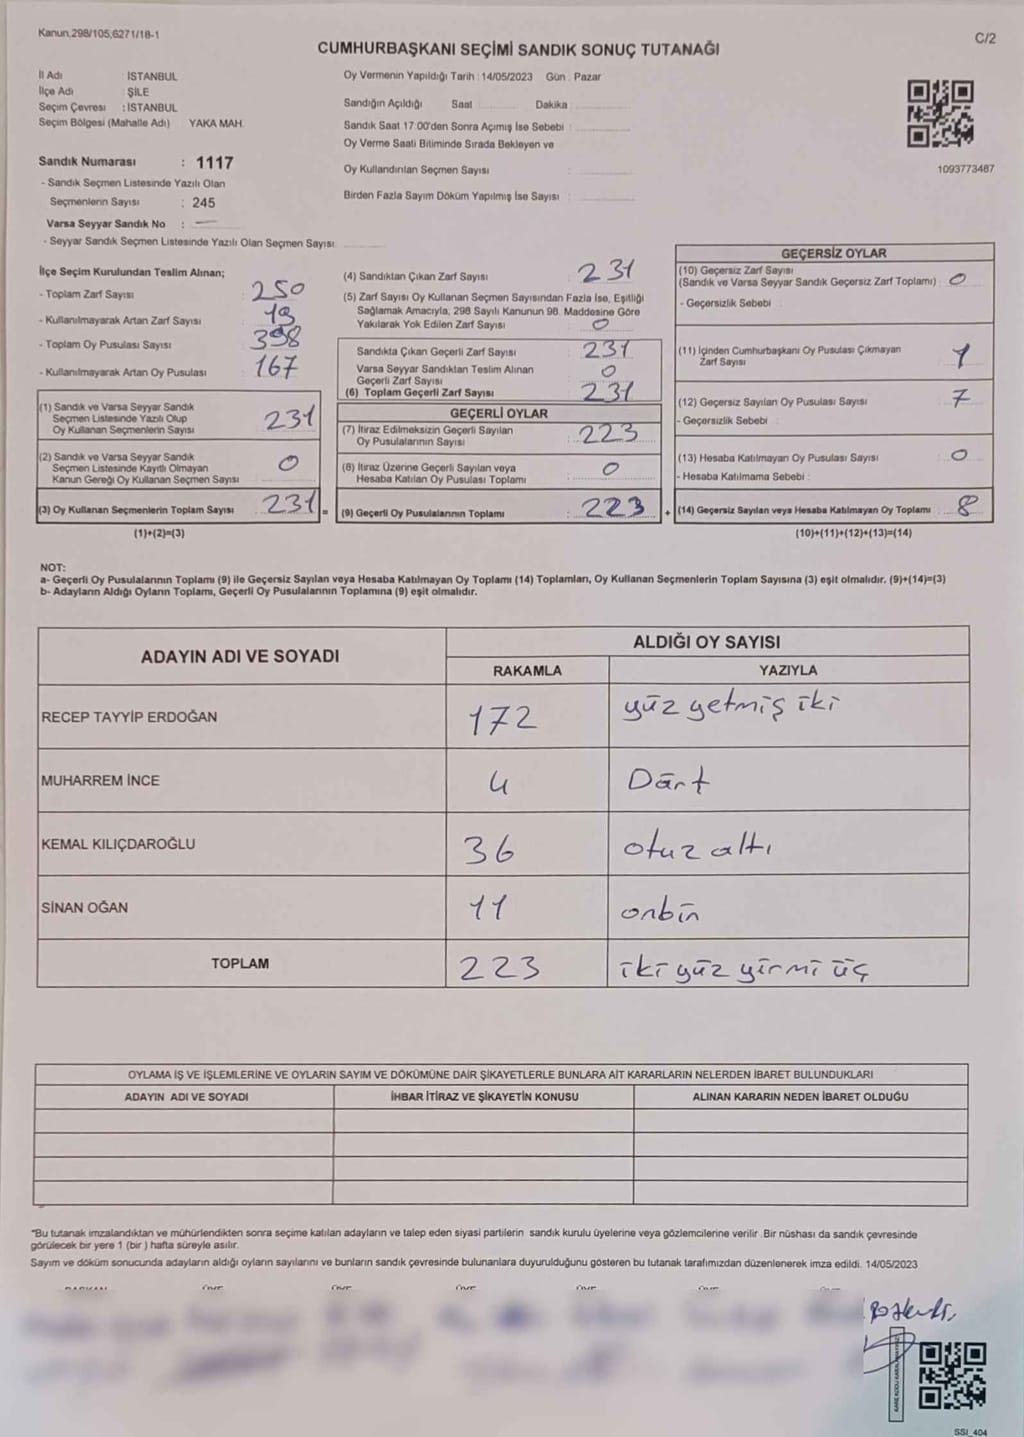 Kanun,298/105,6271/18-1
C/2
CUMHURBAŞKANI SEÇİMİ SANDIK SONUÇ TUTANAĞI
İl Adı : İSTANBUL
İlçe Adı : ŞİLE
Seçim Çevresi : İSTANBUL
Seçim Bölgesi (Mahalle Adı) YAKA MAH.
Sandık Numarası : 1117
- Sandık Seçmen Listesinde Yazılı Olan
Seçmenlerin Sayısı : 245
Varsa Seyyar Sandık No : —
- Seyyar Sandık Seçmen Listesinde Yazılı Olan Seçmen Sayısı
Oy Vermenin Yapıldığı Tarih : 14/05/2023 Gün : Pazar
Sandığın Açıldığı Saat Dakika :
Sandık Saat 17:00'den Sonra Açımış İse Sebebi :
Oy Verme Saati Bitiminde Sırada Bekleyen ve
Oy Kullandırılan Seçmen Sayısı :
Birden Fazla Sayım Döküm Yapılmış İse Sayısı :
1093773487
İlçe Seçim Kurulundan Teslim Alınan;
- Toplam Zarf Sayısı : 250
- Kullanılmayarak Artan Zarf Sayısı : 19
- Toplam Oy Pusulası Sayısı : 398
- Kullanılmayarak Artan Oy Pusulası : 167
(1) Sandık ve Varsa Seyyar Sandık
Seçmen Listesinde Yazılı Olup
Oy Kullanan Seçmenlerin Sayısı : 231
(2) Sandık ve Varsa Seyyar Sandık
Seçmen Listesinde Kayıtlı Olmayan
Kanun Gereği Oy Kullanan Seçmen Sayısı : 0
(3) Oy Kullanan Seçmenlerin Toplam Sayısı : 231 =
(1)+(2)=(3)
(4) Sandıktan Çıkan Zarf Sayısı : 231
(5) Zarf Sayısı Oy Kullanan Seçmen Sayısından Fazla İse, Eşitliği
Sağlamak Amacıyla, 298 Sayılı Kanunun 98. Maddesine Göre
Yakılarak Yok Edilen Zarf Sayısı : 0
Sandıkta Çıkan Geçerli Zarf Sayısı : 231
Varsa Seyyar Sandıktan Teslim Alınan
Geçerli Zarf Sayısı : 0
(6) Toplam Geçerli Zarf Sayısı : 231
GEÇERLİ OYLAR
(7) İtiraz Edilmeksizin Geçerli Sayılan
Oy Pusulalarının Sayısı : 223
(8) İtiraz Üzerine Geçerli Sayılan veya
Hesaba Katılan Oy Pusulası Toplamı : 0
(9) Geçerli Oy Pusulalarının Toplamı : 223 +
GEÇERSİZ OYLAR
(10) Geçersiz Zarf Sayısı
(Sandık ve Varsa Seyyar Sandık Geçersiz Zarf Toplamı) : 0
- Geçersizlik Sebebi :
(11) İçinden Cumhurbaşkanı Oy Pusulası Çıkmayan
Zarf Sayısı : 1
(12) Geçersiz Sayılan Oy Pusulası Sayısı : 7
- Geçersizlik Sebebi :
(13) Hesaba Katılmayan Oy Pusulası Sayısı : 0
- Hesaba Katılmama Sebebi :
(14) Geçersiz Sayılan veya Hesaba Katılmayan Oy Toplamı : 8
(10)+(11)+(12)+(13)=(14)
NOT:
a- Geçerli Oy Pusulalarının Toplamı (9) ile Geçersiz Sayılan veya Hesaba Katılmayan Oy Toplamı (14) Toplamları, Oy Kullanan Seçmenlerin Toplam Sayısına (3) eşit olmalıdır. (9)+(14)=(3)
b- Adayların Aldığı Oyların Toplamı, Geçerli Oy Pusulalarının Toplamına (9) eşit olmalıdır.
ADAYIN ADI VE SOYADI ALDIĞI OY SAYISI
RAKAMLA YAZIYLA
RECEP TAYYİP ERDOĞAN 172 yüz yetmiş iki
MUHARREM İNCE 4 Dört
KEMAL KILIÇDAROĞLU 36 otuz altı
SİNAN OĞAN 11 onbir
TOPLAM 223 iki yüz yirmi üç
OYLAMA İŞ VE İŞLEMLERİNE VE OYLARIN SAYIM VE DÖKÜMÜNE DAİR ŞİKAYETLERLE BUNLARA AİT KARARLARIN NELERDEN İBARET BULUNDUKLARI
ADAYIN ADI VE SOYADI İHBAR İTİRAZ VE ŞİKAYETİN KONUSU ALINAN KARARIN NEDEN İBARET OLDUĞU
"Bu tutanak imzalandıktan ve mühürlendikten sonra seçime katılan adayların ve talep eden siyasi partilerin sandık kurulu üyelerine veya gözlemcilerine verilir .Bir nüshası da sandık çevresinde
görülecek bir yere 1 (bir ) hafta süreyle asılır.
Sayım ve döküm sonucunda adayların aldığı oyların sayılarını ve bunların sandık çevresinde bulunanlara duyurulduğunu gösteren bu tutanak tarafımızdan düzenlenerek imza edildi. 14/05/2023
SSI_404